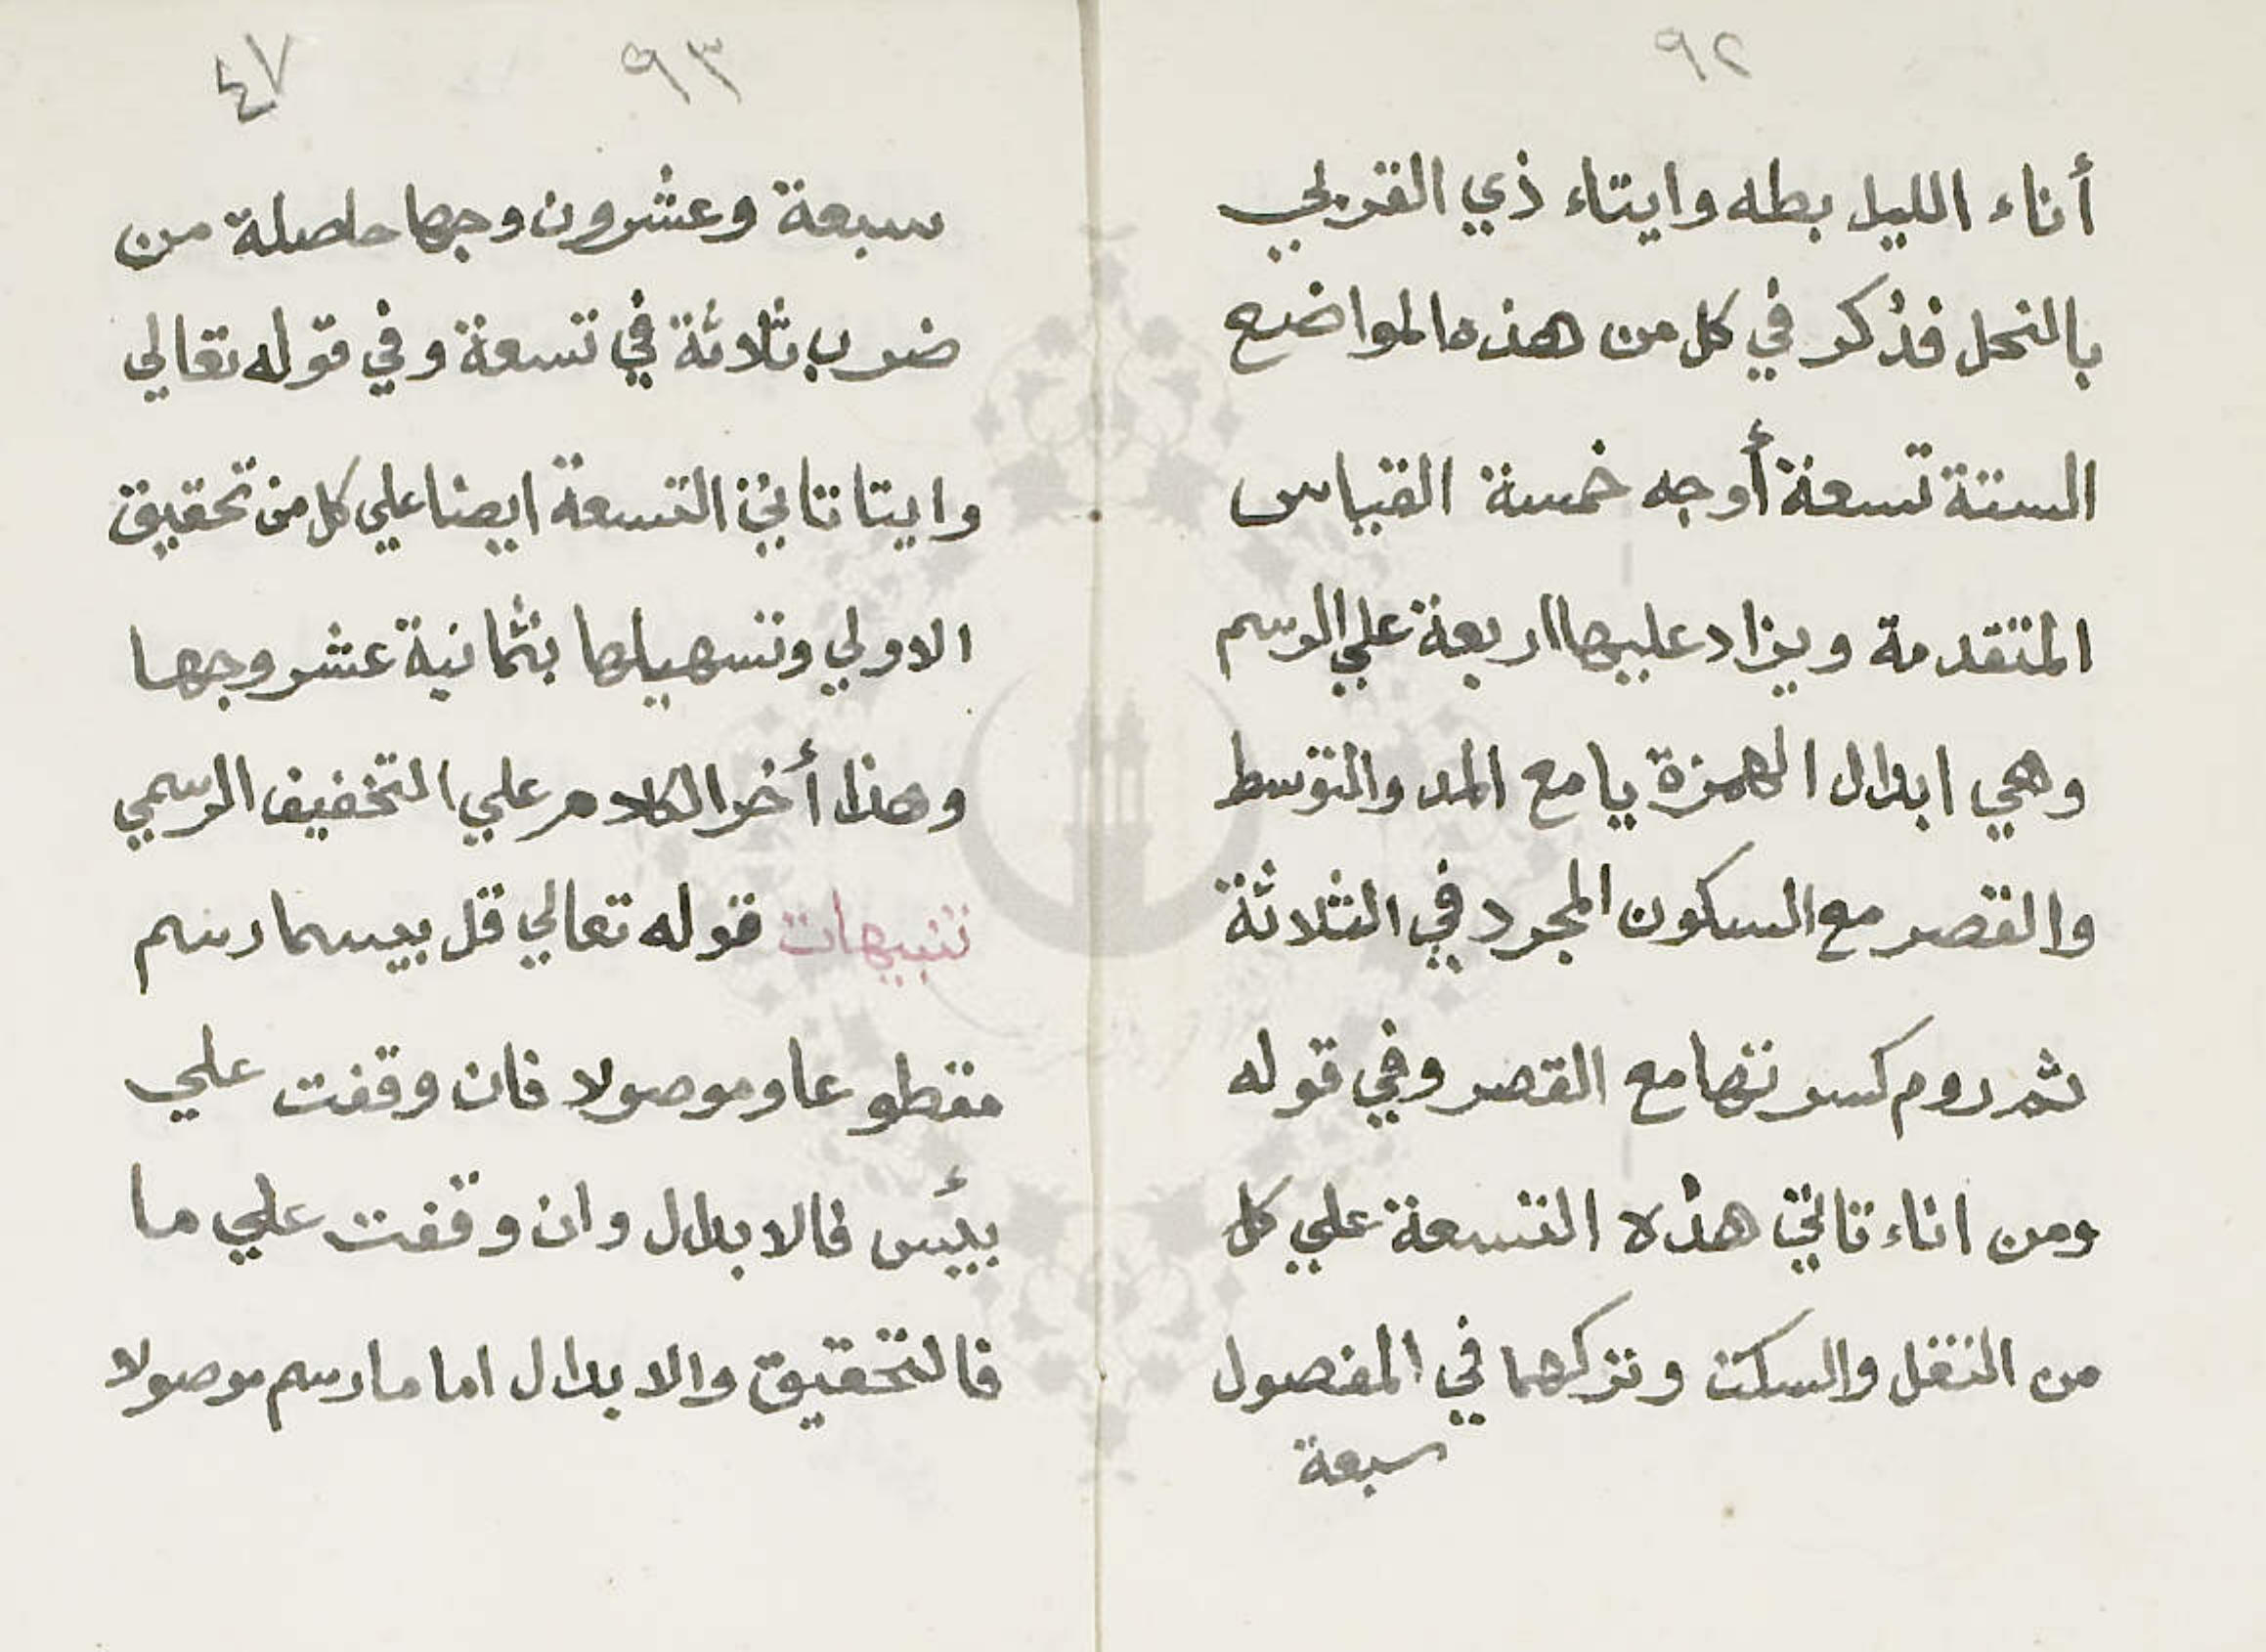 ٩٢
أناء الليل بطه وايتاء ذي القربي
بالنحل فذكر في كل من هذه المواضع
الستة تسعة أوجه خمسة القياس
المتقدمة ويزاد عليها اربعة علي الرسم
وهي ابدال الهمزة يا مع المد والتوسط
والقصر مع السكون المجرد في الثلاثة
ثم روم كسرتها مع القصر وفي قوله
ومن اناء تاتي هذه التسعة علي كل
من النقل والسكت وتركهما في المفصول
سبعة
٩٣
٤٧
سبعة وعشرون وجها حاصلة من
ضرب ثلاثة في تسعة وفي قوله تعالي
وايتا تاتي التسعة ايضا علي كل من تحقيق
الاولي وتسهيلها بثمانية عشر وجها
وهذا أخر الكلام علي التخفيف الرسمي
تنبيهات قوله تعالي قل بيسما رسم
مقطوعا وموصولا فان وقفت علي
بئس فالابدال وان وقفت علي ما
فالتحقيق والابدال اما ما رسم موصولا